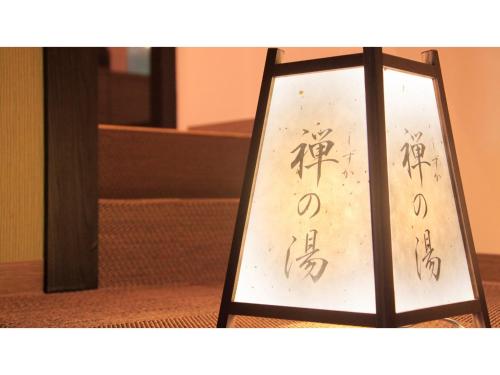 禅の湯
しずか
禅の湯
しずか